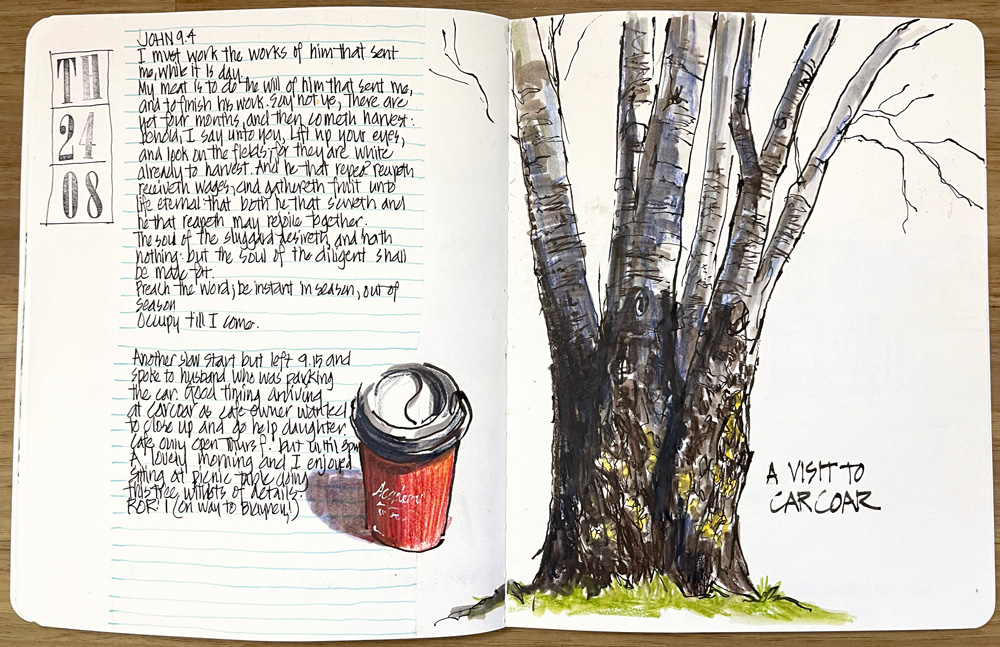 TH
24
08
JOHN 9.4
I must work the works of him that sent
me, while it is day.
My meat is to do the will of him that sent me,
and to finish his work. Say not ye, There are
yet four months, and then cometh harvest:
behold, I say unto you, Lift up your eyes,
and look on the fields; for they are white
already to harvest. And he that reapeth
receiveth wages, and gathereth fruit unto
life eternal that both he that soweth and
he that reapeth may rejoice together.
The soul of the sluggard desireth, and hath
nothing: but the soul of the diligent shall
be made fat.
Preach the word; be instant in season, out of
season
Occupy till I come.
Another slow start but left 9.15 and
spoke to husband who was parking
the car. Good timing arriving
at Carcoar as cafe owner wanted
to close up and go help daughter.
Cafe only open Thurs F. but until 3pm
A lovely morning and I enjoyed
sitting at picnic table doing
this tree, with lots of details.
ROR: 1 (on way to Blayney!)
Academy
A VISIT TO
CARCOAR